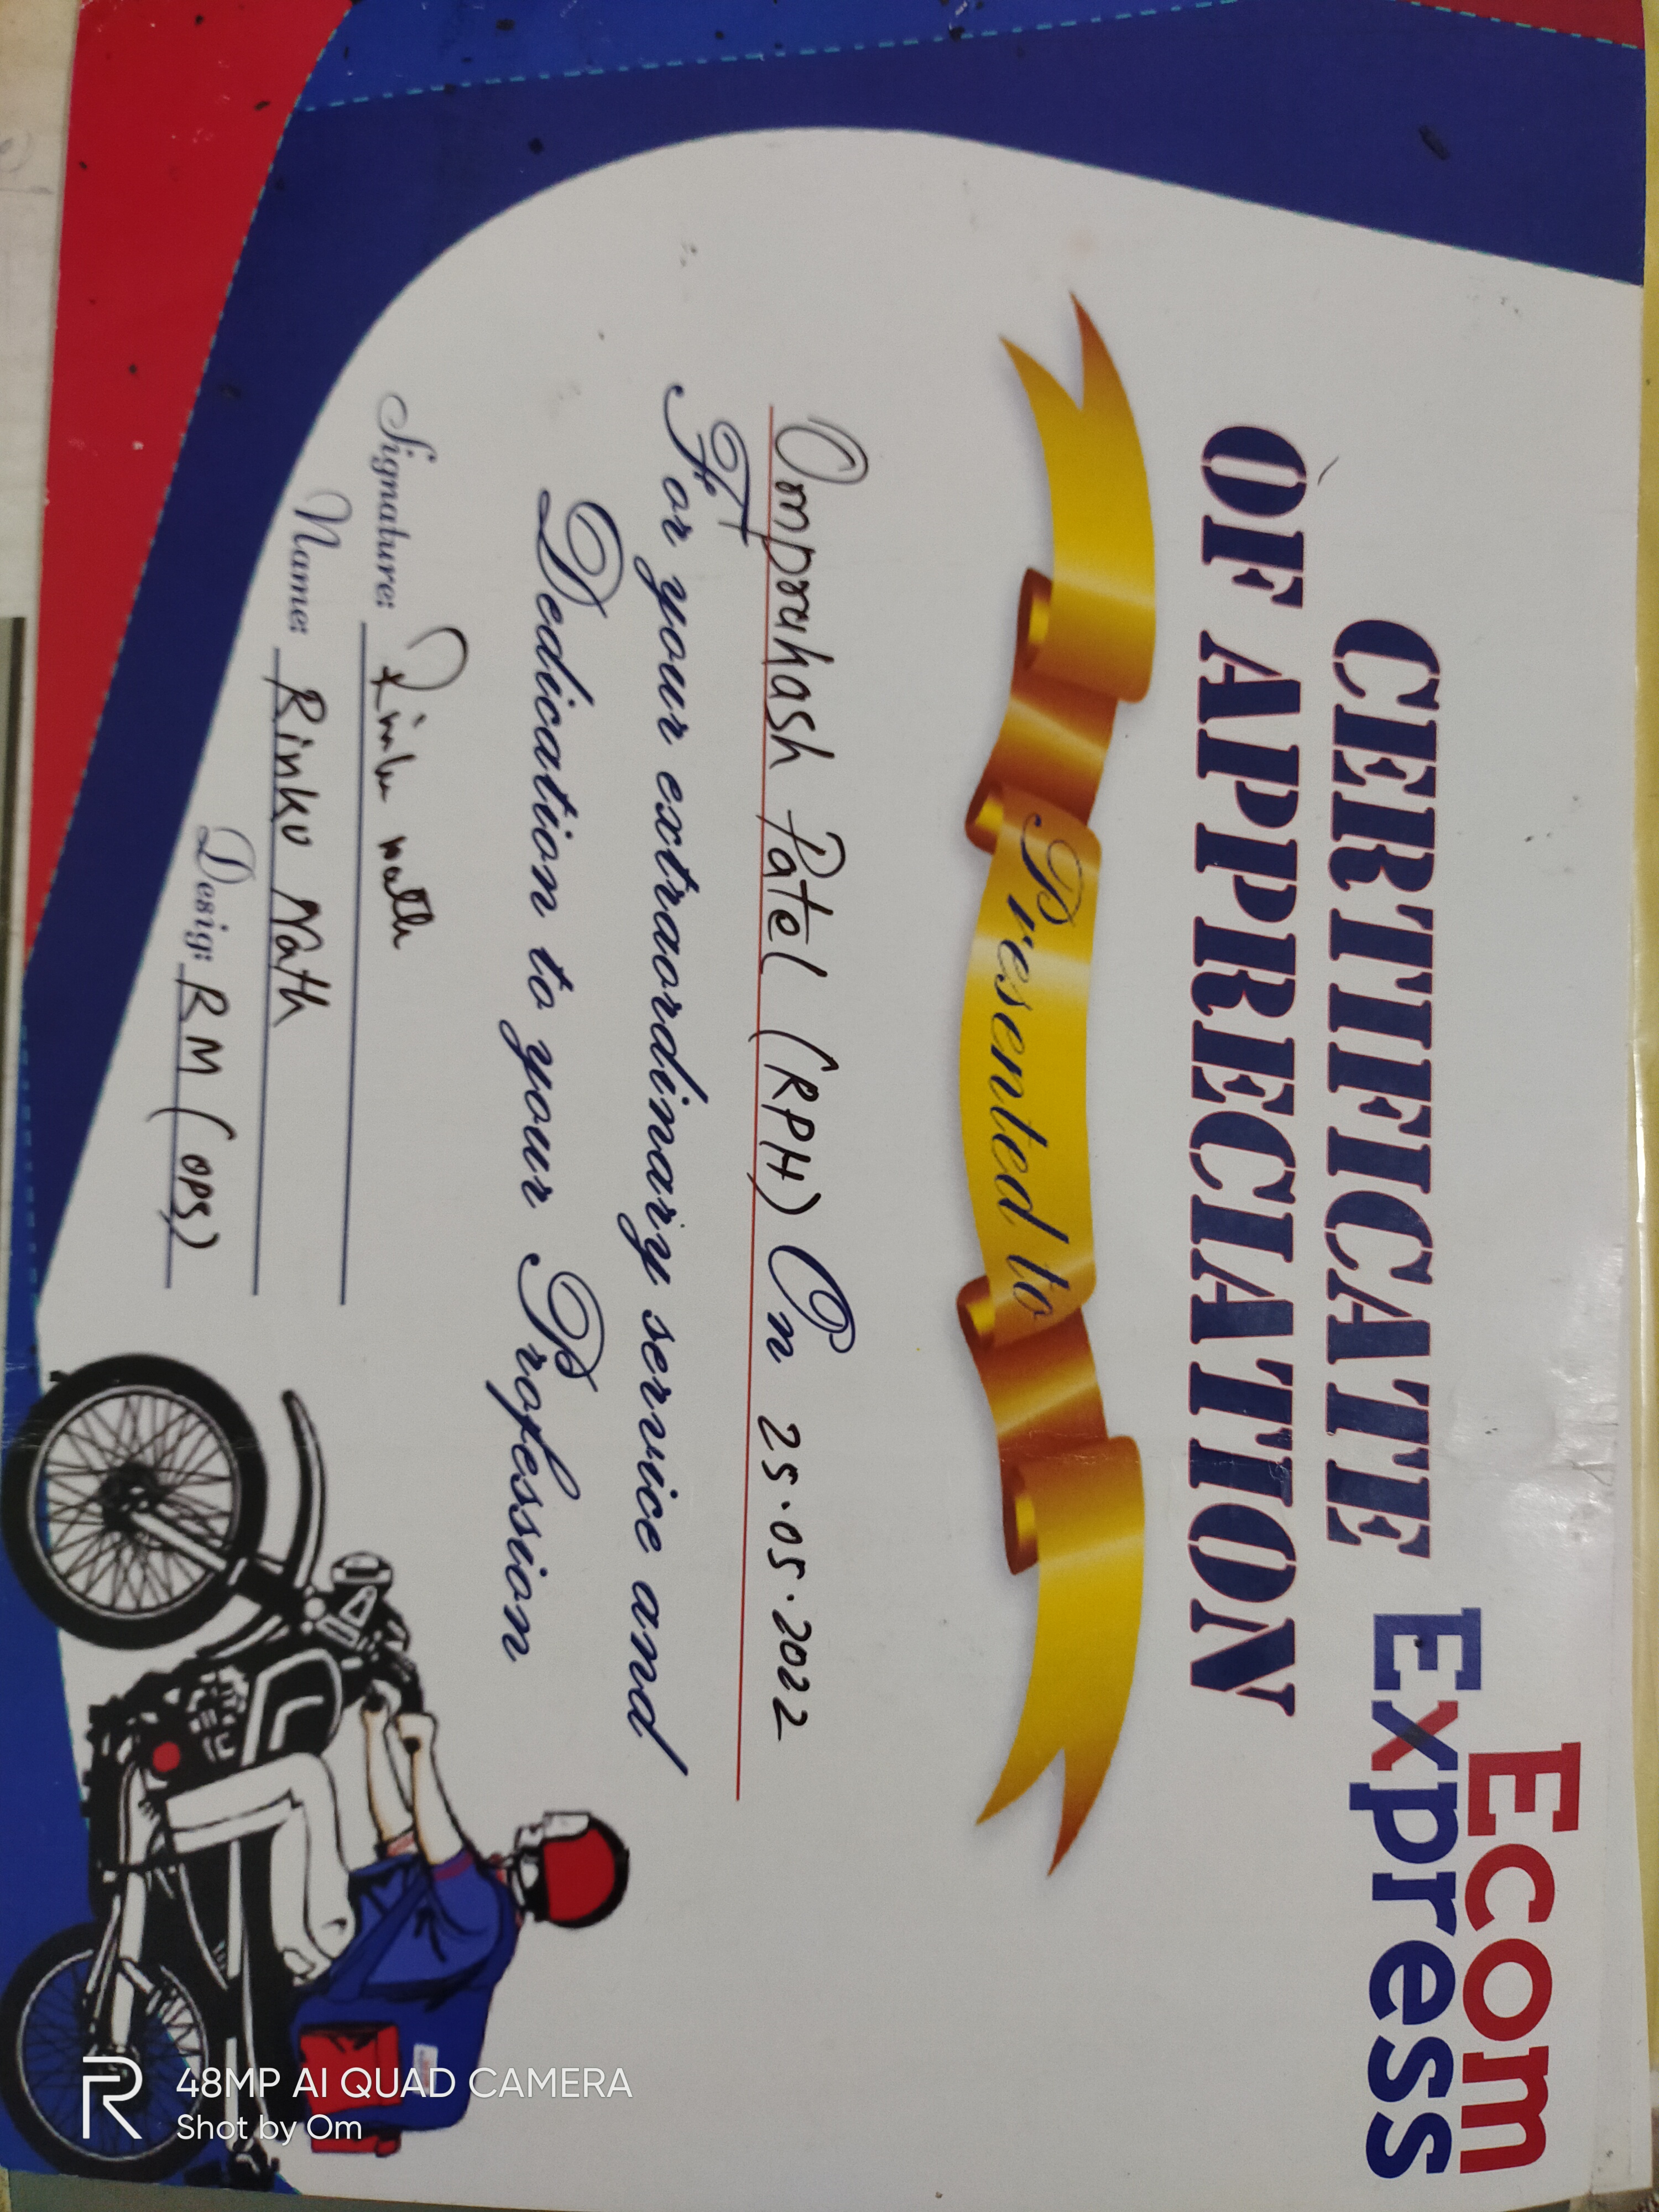 Ecom
Express
CERTIFICATE
OF APPRECIATION
Presented to
Omprakash Patel (RPH) On 25.05.2022
For your extraordinary service and
Dedication to your Profession
Signature: Rinku nath
Name: Rinku Nath
Desig: RM (OPS)
48MP AI QUAD CAMERA
Shot by Om